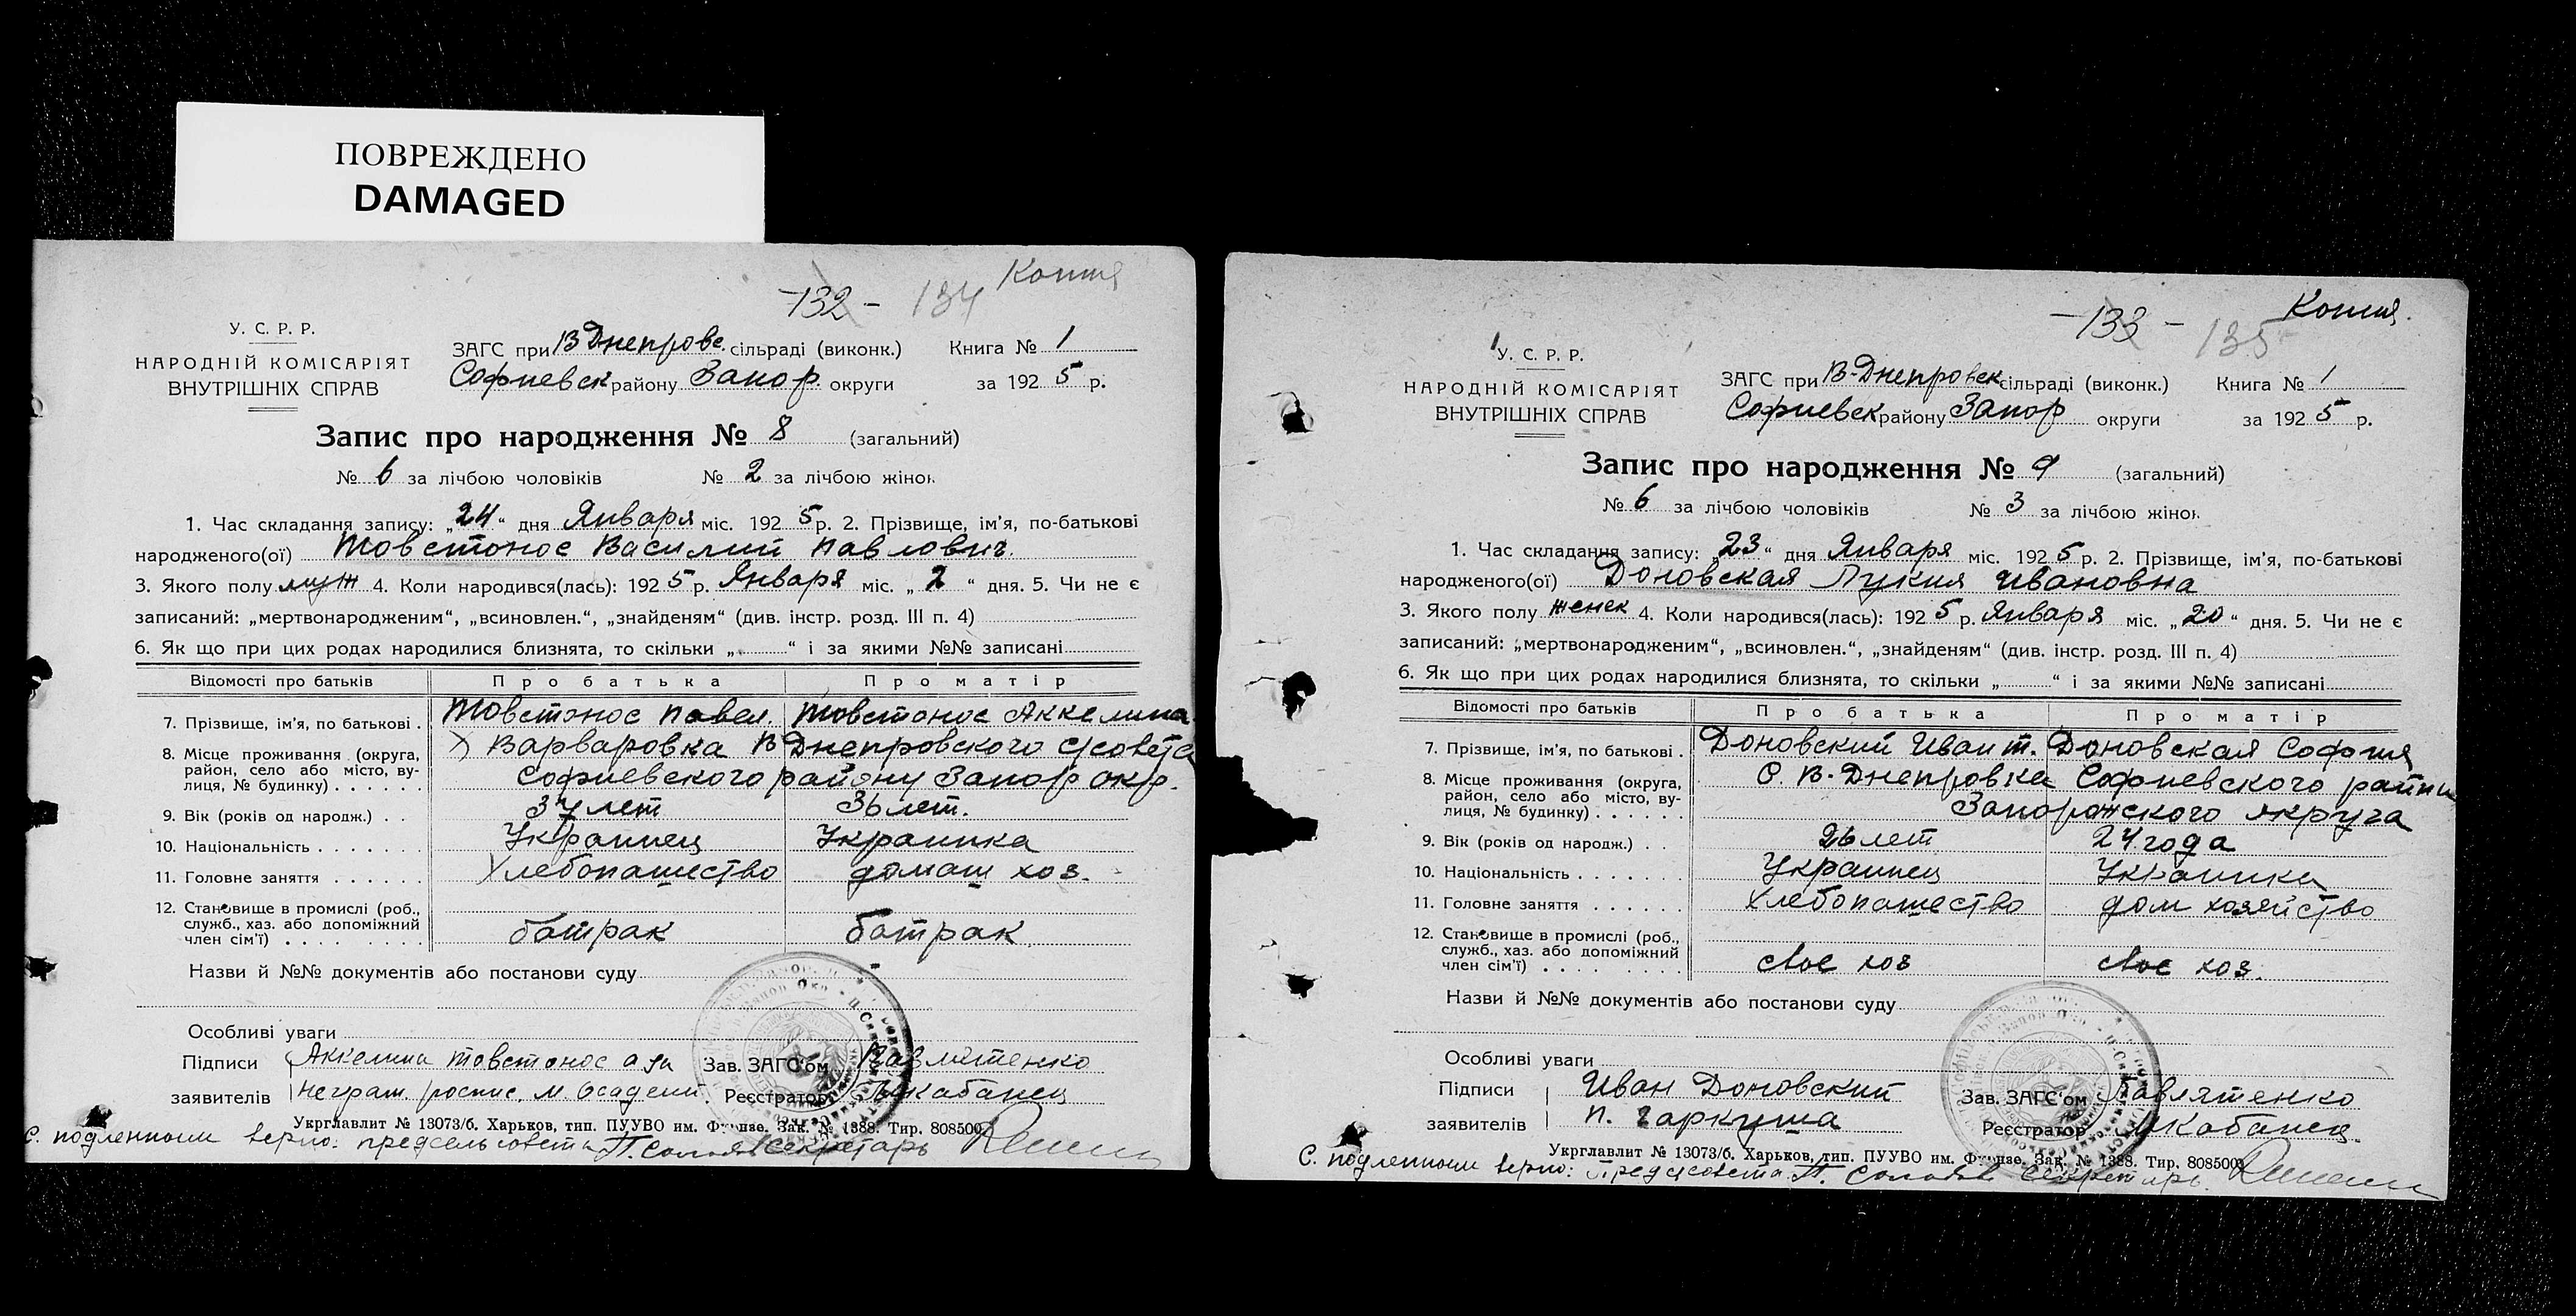 ПОВРЕЖДЕНО
DAMAGED
-132- 134 Копия
У. С. Р. Р.
НАРОДНІЙ КОМІСАРІЯТ
ВНУТРІШНІХ СПРАВ
ЗАГС при В Днепрове. сільраді (виконк.) Книга № 1
Софиевск району Запор. округи за 1925 р.
Запис про народження № 8 (загальний)
№ 6 за лічбою чоловіків № 2 за лічбою жінок.
1. Час складання запису: „24“ дня Января міс. 1925 р. 2. Прізвище, ім’я, по-батькові
народженого(ої) Товстонос Василий Павлович.
3. Якого полу муж 4. Коли народився(лась): 1925 р. Января міс. „2“ дня. 5. Чи не є
записаний: „мертвонародженим“, „всиновлен.“, „знайденям“ (див. інстр. розд. III п. 4)
6. Як що при цих родах народилися близнята, то скільки „ “ і за якими №№ записані
Відомості про батьків Про батька Про матір
7. Прізвище, ім’я, по батькові . Товстонос Павел. Товстонос Аккелина
8. Місце проживання (округа, район, село або місто, вулиця, № будинку) . . . . . . х Варваровка В Днепровского с/совета
Софиевского району Запор окр.
9. Вік (років од народж.) . . 37 лет 36 лет.
10. Національність . . . . . . Украинец Украинка
11. Головне заняття . . . . . . Хлебопашество домаш хоз.
12. Становище в промислі (роб.,
служб., хаз. або допоміжний
член сім’ї) . . . . батрак батрак
Назви й №№ документів або постанови суду
Особливі уваги
Підписи Аккелина Товстонос а за Зав. ЗАГС’ом Павлятенко
заявителів неграм. роспис. М. Осадчий. Реєстратор Кабанец
Укрглавлит № 13073/б. Харьков, тип. ПУУВО им. Фрунзе. Зак. № 1388. Тир. 808500
С. подленным верно: предсельсовета П. Секретарь
-133- 135 Копия.
У. С. Р. Р.
НАРОДНІЙ КОМІСАРІЯТ
ВНУТРІШНІХ СПРАВ
ЗАГС при В-Днепровск сільраді (виконк.) Книга № 1
Софиевск району Запор округи за 1925 р.
Запис про народження № 9 (загальний)
№ 6 за лічбою чоловіків № 3 за лічбою жінок.
1. Час складання запису: „23“ дня Января міс. 1925 р. 2. Прізвище, ім’я, по-батькові
народженого(ої) Доновская Лукия Ивановна
3. Якого полу женск 4. Коли народився(лась): 1925 р. Января міс. „20“ дня. 5. Чи не є
записаний: „мертвонародженим“, „всиновлен.“, „знайденям“ (див. інстр. розд. III п. 4)
6. Як що при цих родах народилися близнята, то скільки „ “ і за якими №№ записані
Відомості про батьків Про батька Про матір
7. Прізвище, ім’я, по батькові . Доновский Иван т. Доновская София
8. Місце проживання (округа, район, село або місто, вулиця, № будинку) . . . . . . С. В-Днепровка Софиевского района
Запорожского округа
9. Вік (років од народж.) . . 26 лет 24 года
10. Національність . . . . . . Украинец Украинка
11. Головне заняття . . . . . . Хлебопашество дом хозяйство
12. Становище в промислі (роб.,
служб., хаз. або допоміжний
член сім’ї) . . . . свое хоз свое хоз.
Назви й №№ документів або постанови суду
Особливі уваги
Підписи Иван Доновский Зав. ЗАГС’ом Павлятенко
заявителів П. Гаркуша Реєстратор Кабанец.
Укрглавлит № 13073/б. Харьков, тип. ПУУВО им. Фрунзе. Зак. № 1388. Тир. 808500
С. подленным верно: Предсовета П. Секретарь